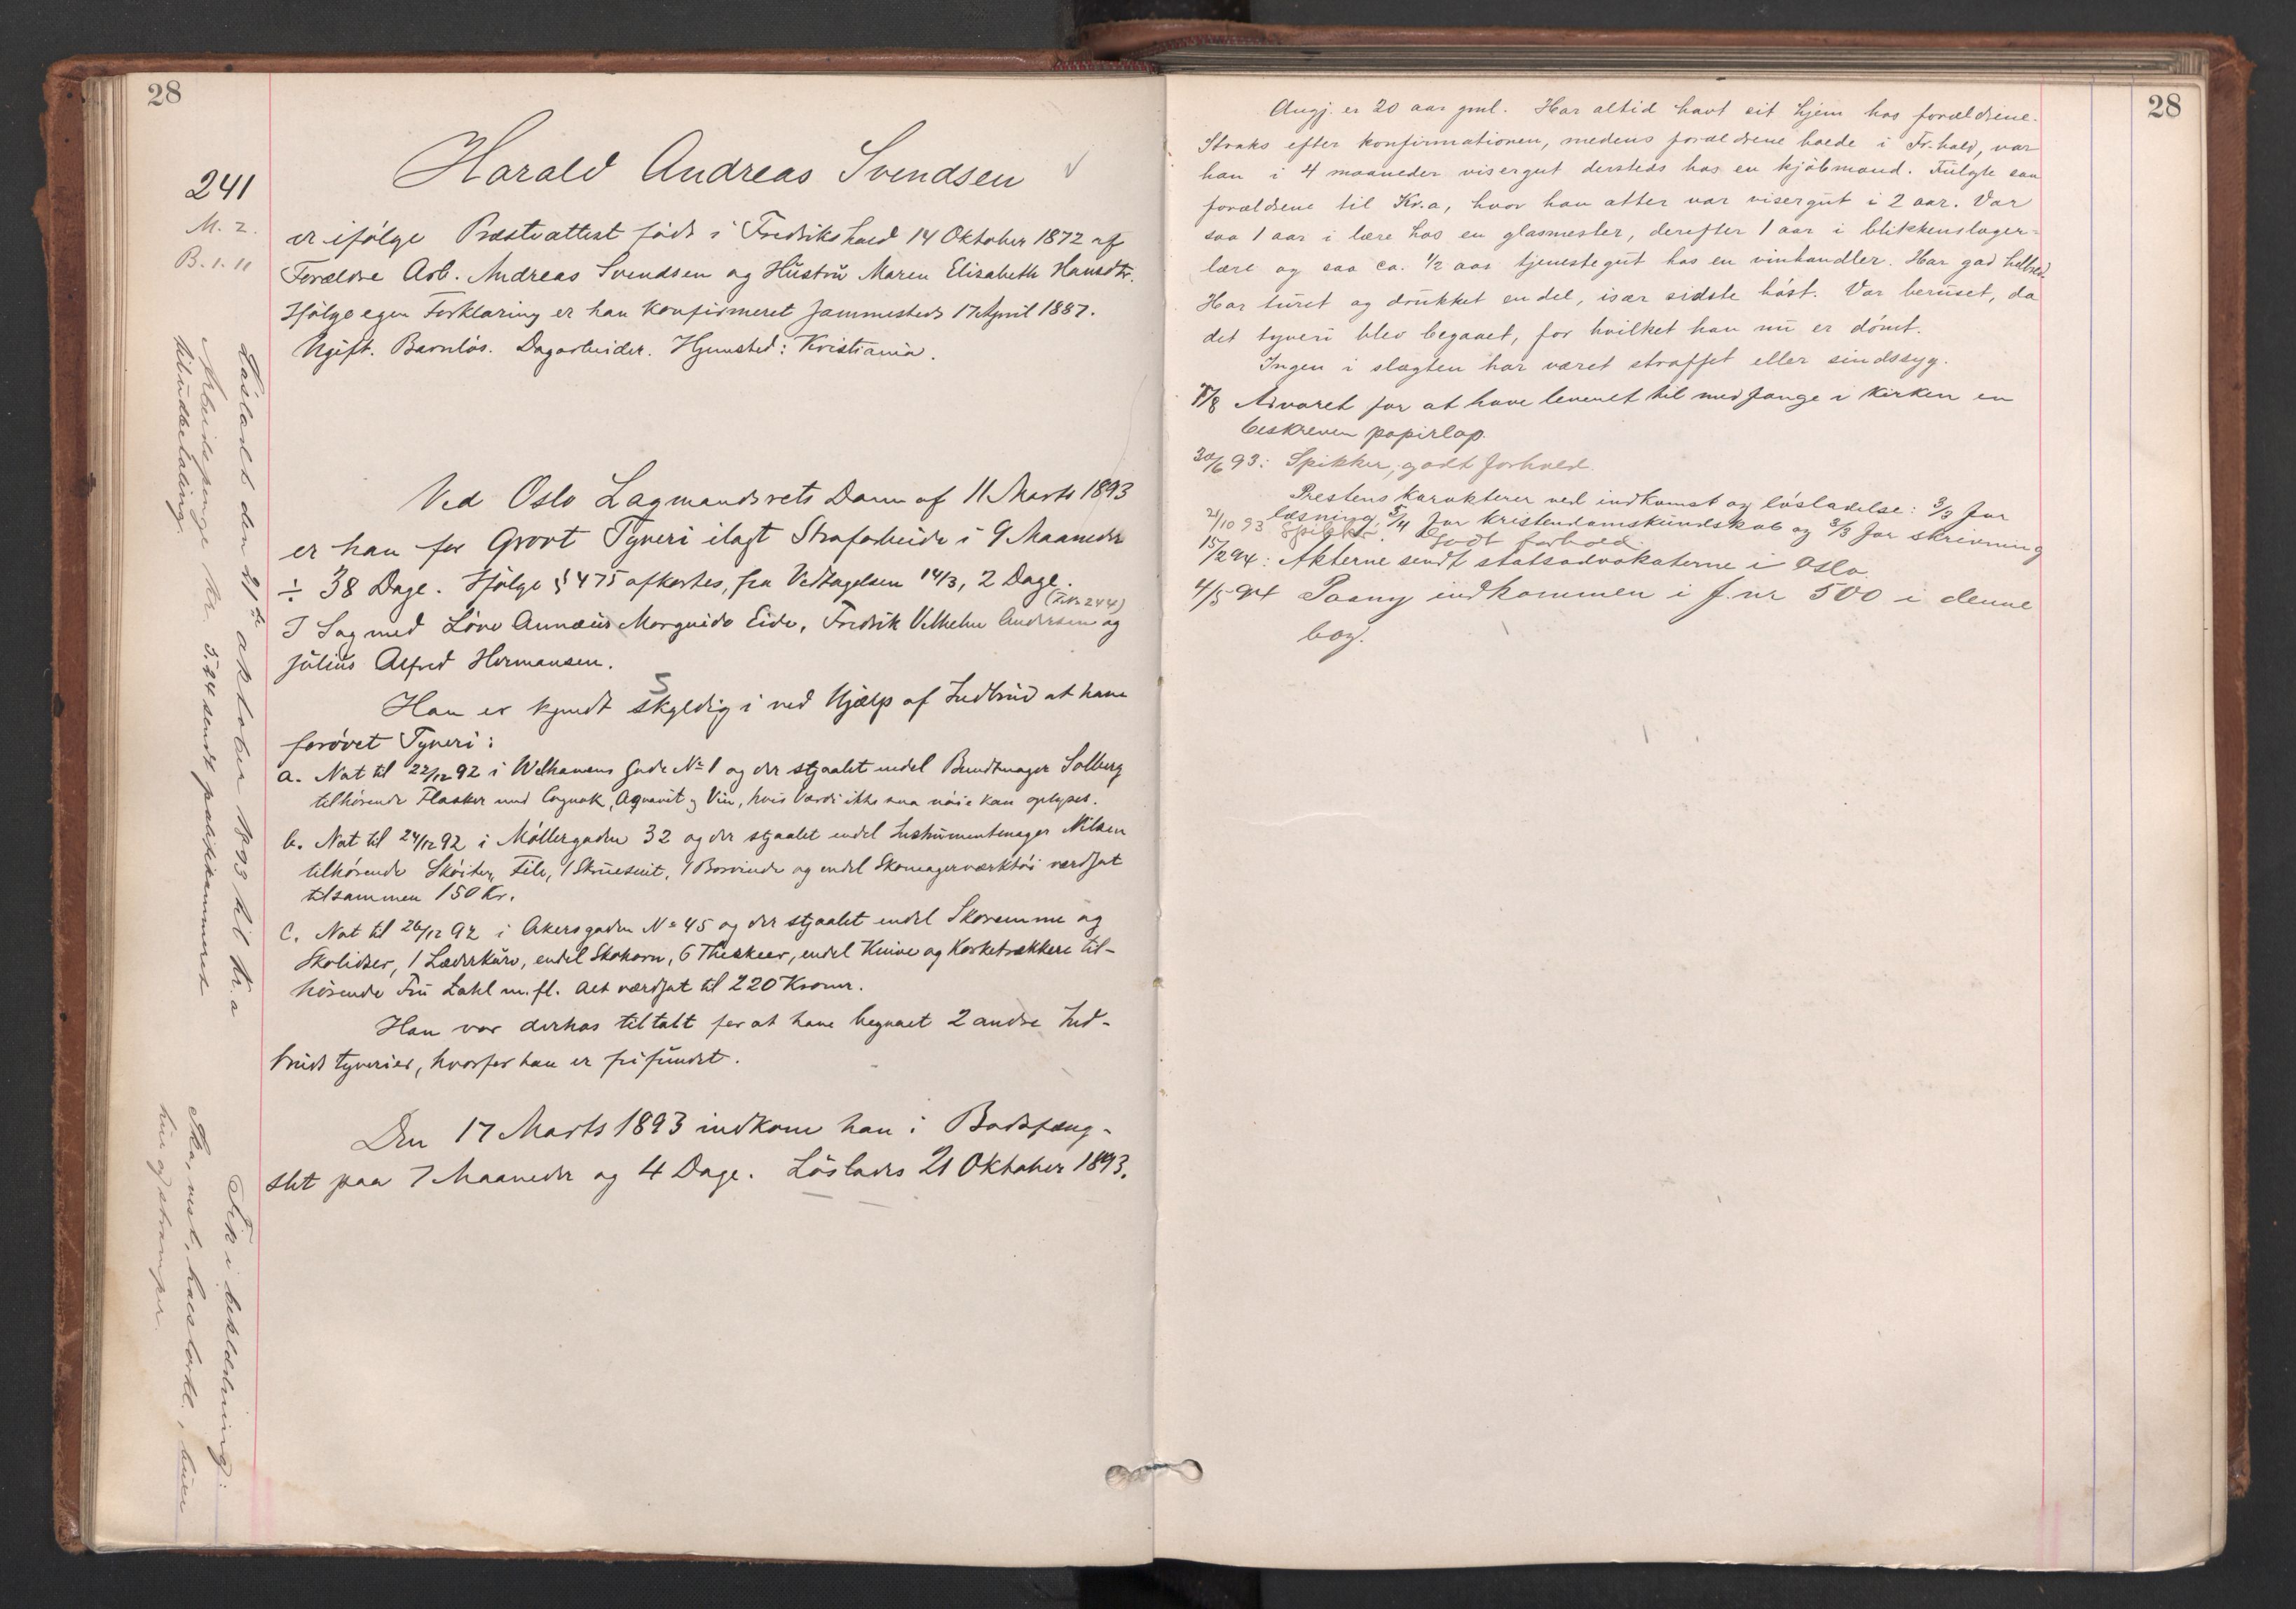 28
241
M. 2.
B. 1. 11
Harald Andreas Svendsen
er ifölge Præsteattest född i Fredrikshald 14 Oktober 1872 af
Forældre Arb. Andreas Svendsen og Hustru Maren Elisabeth Hansdtr.
Ifölge egen Forklaring er han konfirmeret sammesteds 17 April 1887.
Ugift. Barnlös. Dagarbeider. Hjemsted: Kristiania.
Ved Oslo Lagmandsrets Dom af 11 Marts 1893
er han for Grovt Tyveri ilagt Strafarbeide i 9 Maaneder
÷ 38 Dage. Ifölge § 475 afkortes, fra Vedtagelsen 14/3, 2 Dage.
(F. No 244)
I Sag med Löve Annæus Morguido Eide, Fredrik Vilhelm Andersen og
Julius Alfred Hermansen.
Han er kjendt skyldig i ved Hjælp af Indbrud at have
forövet Tyveri:
a. Nat til 22/12 92 i Welhavens Gade No 1 og der stjaalet endel Bundtmager Solberg
tilhörende Flasker med Cognak, Aquavit og Vin, hvis Værdi ikke saa nöie kan oplyses.
b. Nat til 24/12 92 i Möllergaden 32 og der stjaalet endel Instrumentmager Nilsen
tilhörende Sköiter, File, 1 Skruestit, 1 Borvinde og endel Skomagerværktöi værdsat
tilsammen 150 Kr.
C. Nat til 26/12 92 i Akersgaden No 45 og der stjaalet endel Skoremme og
Skolidser, 1 Læderkurv, endel Skohorn, 6 Theskeer, endel Knive og Korketrækkere til-
hörende Fru Dahl m. fl. Alt værdsat til 220 Kroner.
Han var derhos tiltalt for at have begaaet 2 andre Ind-
bruds tyverier, hvorfor han er frifundet.
Den 17 Marts 1893 indkom han i Bodsfæng-
slet paa 7 Maaneder og 4 Dage. Löslades 21 Oktober 1893.
Lösladt den 21de oktober 1893 til Kr.a
Arbeidspenge Kr. 5.24 sendt politikammeret
til udbetaling.
Fik i beklædning:
Sko, vest, halstørkl., buxer
hue og strømper.
28
Angj. er 20 aar gml. Har altid havt sit hjem hos forældrene.
Straks efter konfirmationen, medens forældrene boede i Fr.hald, var
han i 4 maaneder visergut dersteds hos en kjöbmand. Fulgte saa
forældrene til Kr.a, hvor han atter var visergut i 2 aar. Var
saa 1 aar i lære hos en glasmester, derefter 1 aar i blikkenslager-
lære og saa ca. 1/2 aar tjenestegut hos en vinhandler. Har god helbred.
Har turet og drukket endel, især sidste höst. Var beruset, da
det tyveri blev begaaet, for hvilket han nu er dömt.
Ingen i slægten har været straffet eller sindssyg.
7/8 Advaret for at have levenet til medfange i kirken en
beskreven papirlap.
30/6 93: Spikker; godt forhold.
Prestens karakterer ved indkomst og lösladelse: 3/3 for
læsning, 5/4 for kristendomskundskab og 3/3 for skrivning
21/10 93 Spikker. Godt forhold.
15/2 94: Akterne sendt statsadvokaterne i Oslo.
4/5 94 Paany indkommen i F. nr 500 i denne
bog.